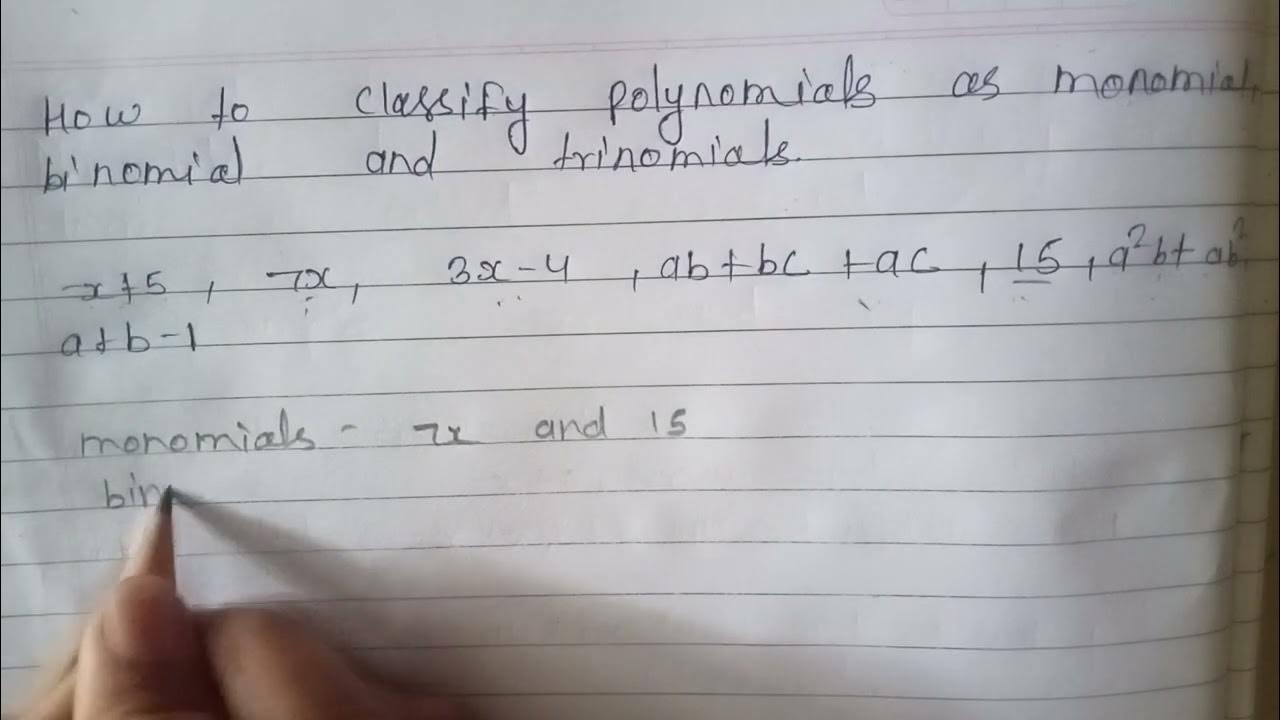 How to classify polynomials as monomial,
binomial and trinomials.
x+5, 7x, 3x-4, ab+bc+ac, 15, a²b+ab²,
a+b-1
monomials - 7x and 15
bin